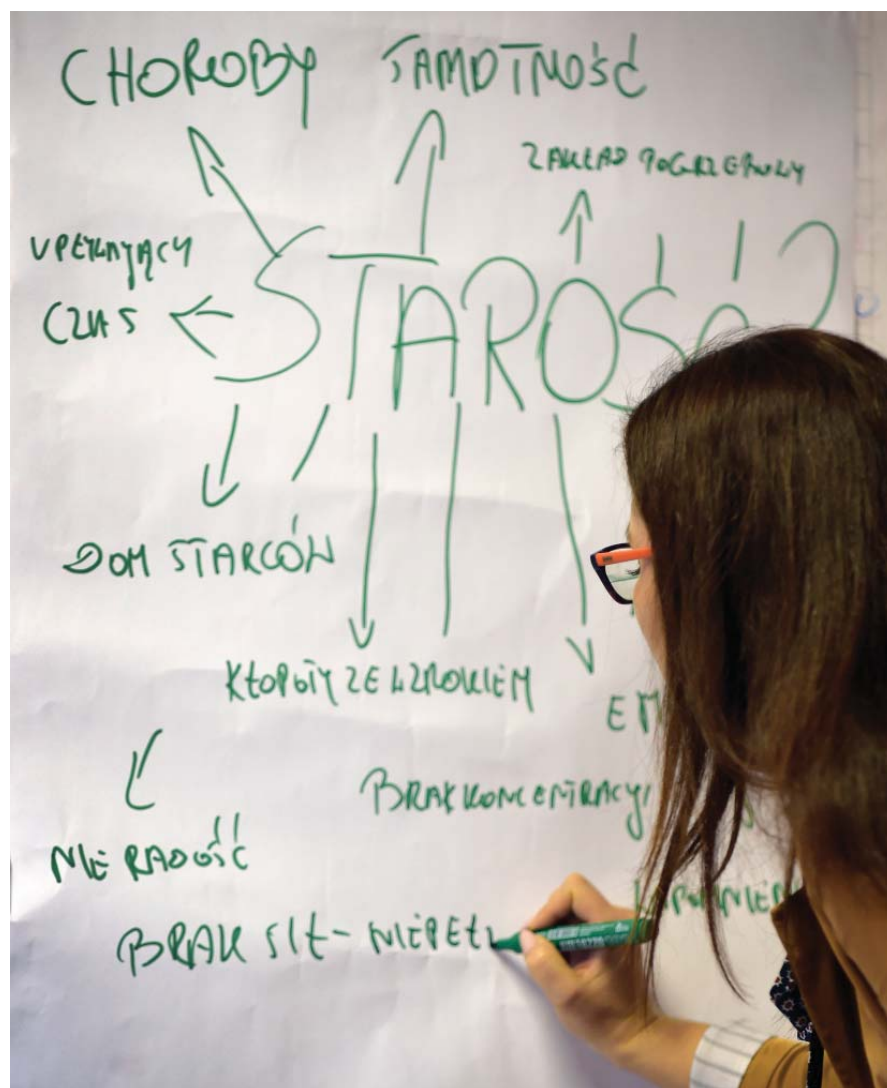 CHOROBY SAMOTNOŚĆ
ZAKŁAD POGRZEBOWY
UPŁYWAJĄCY
CZAS
STAROŚĆ?
DOM STARCÓW
KŁOPOTY ZE WZROKIEM
EM
BRAK KONCENTRACJI
NIERADOŚĆ
BRAK SIŁ - NIEPEŁ